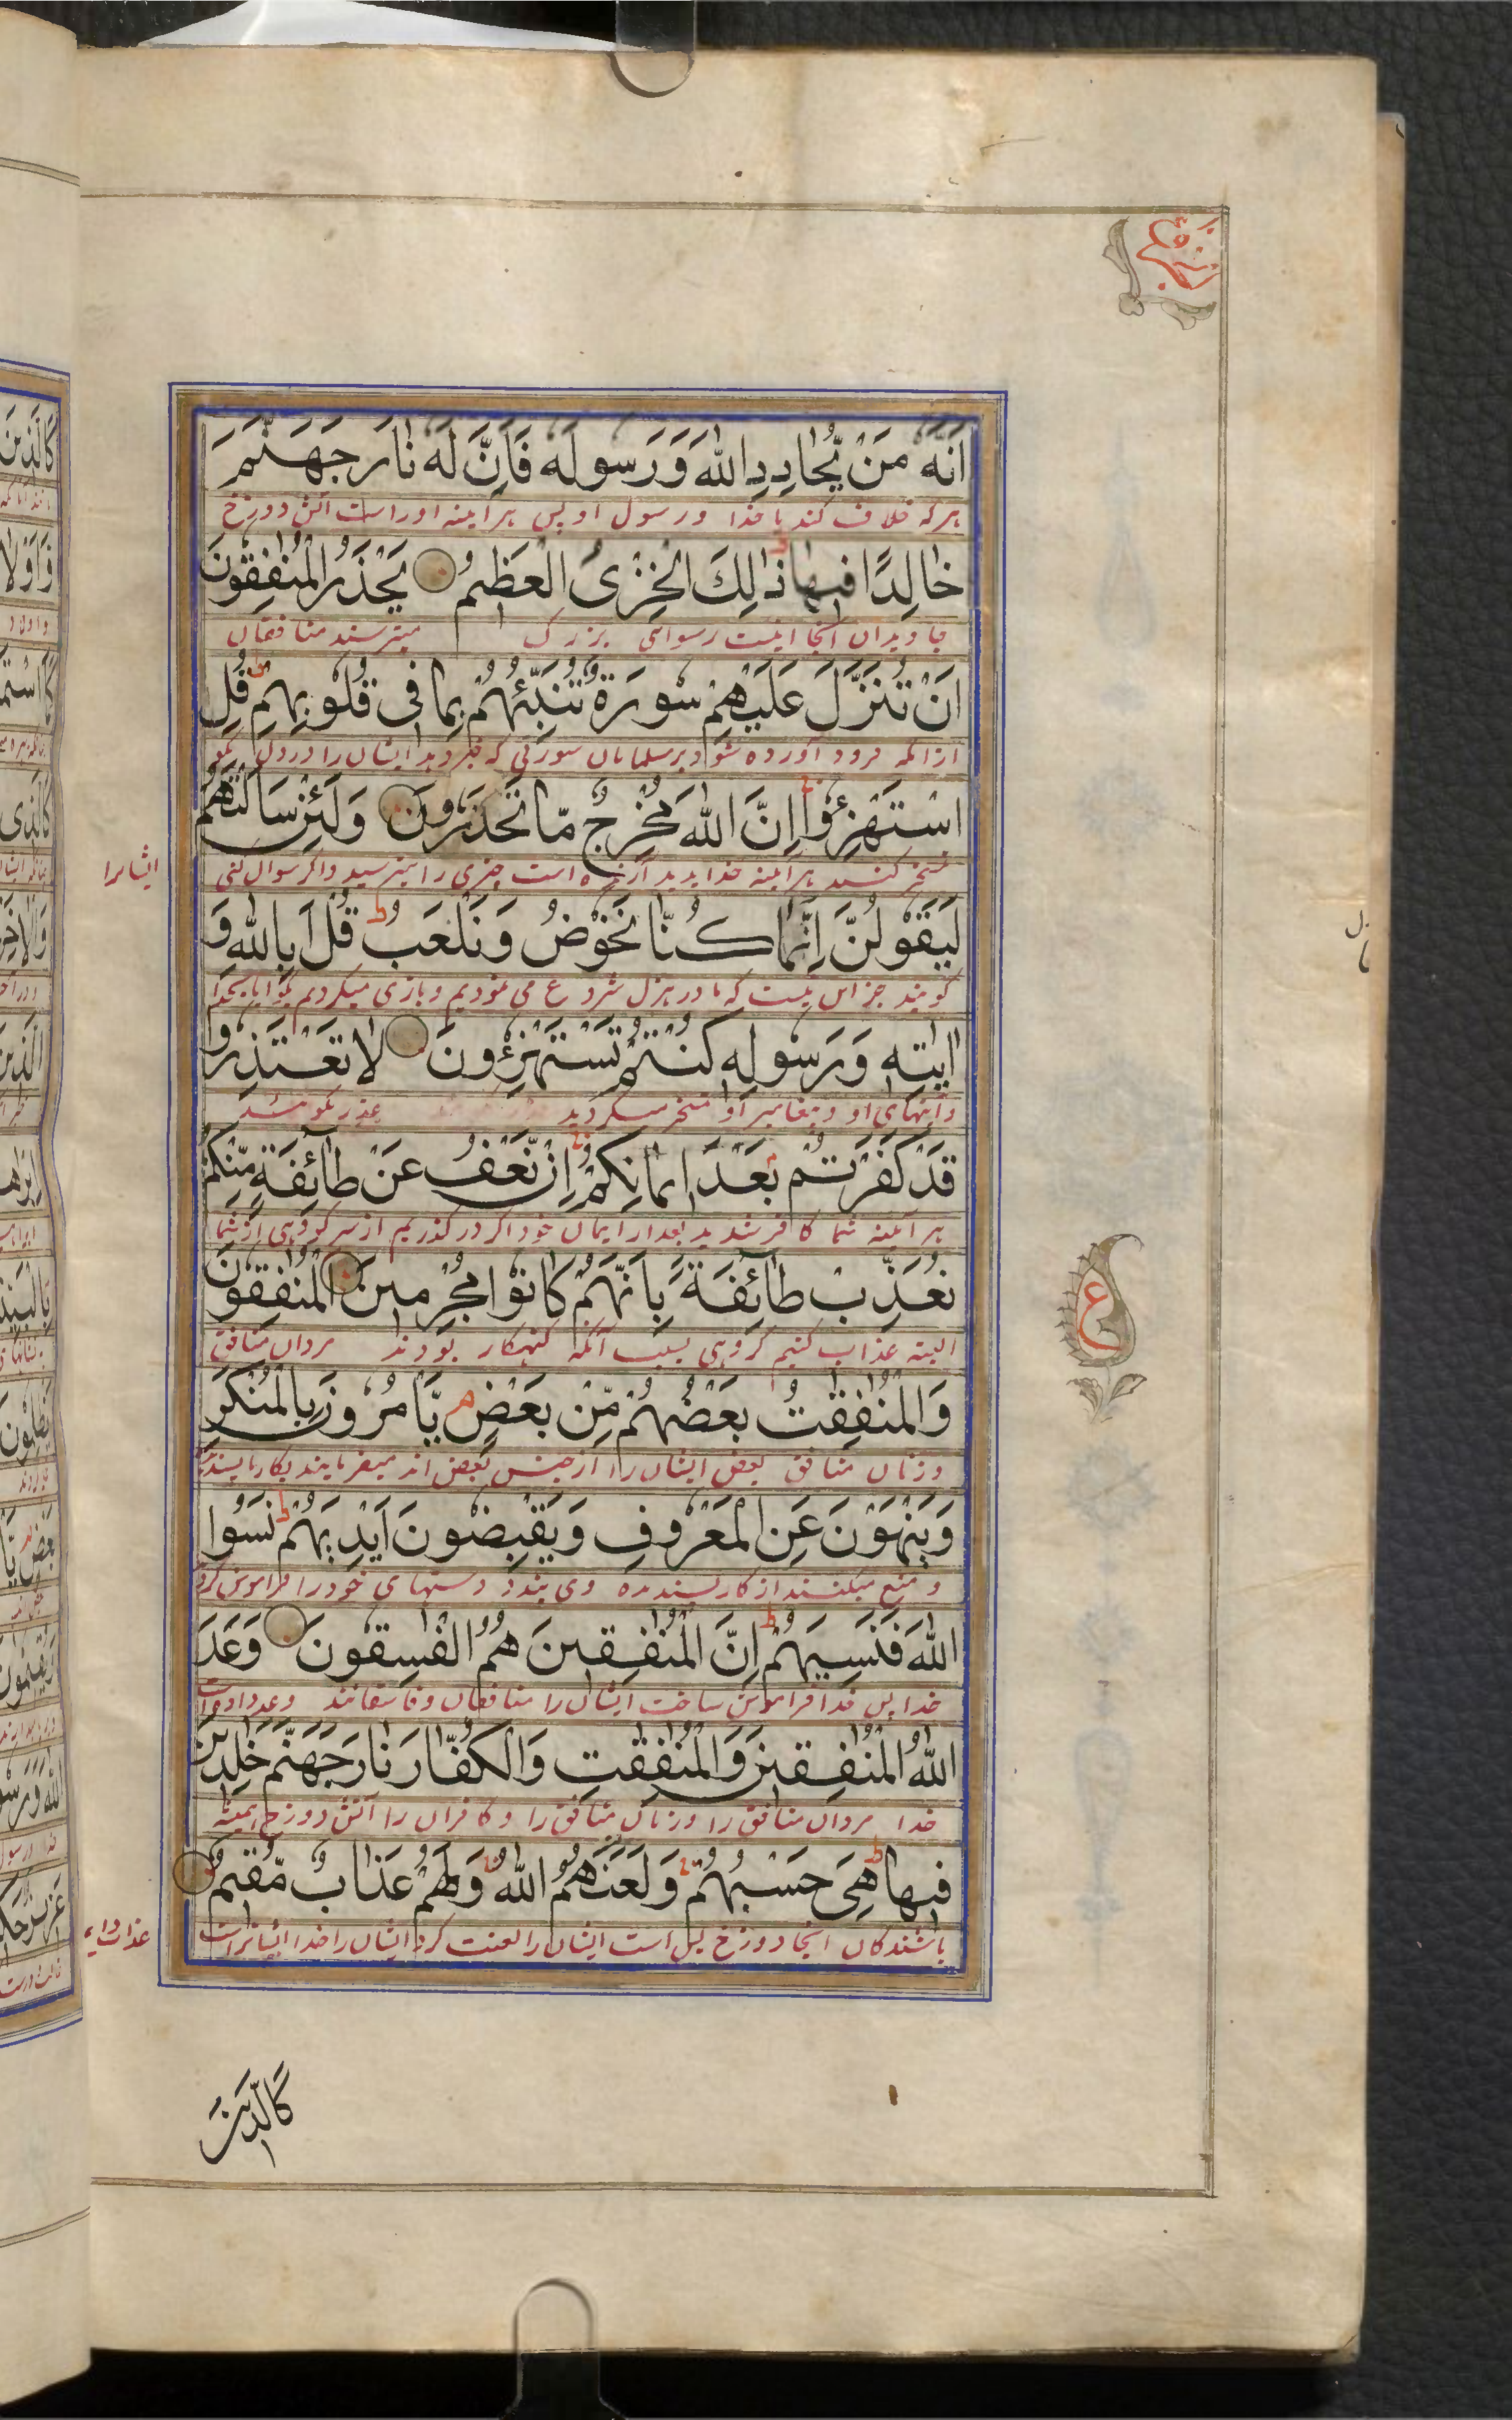 اَنَّهٗ مَنْ يُّحَادِدِ اللّٰهَ وَرَسُولَهٗ فَاَنَّ لَهٗ نَارَ جَهَنَّمَ
هر که خلاف کند با خدا و رسول او پس هر آینه او راست آتش دوزخ
خَالِدًا فِيهَا ذٰلِكَ الْخِزْىُ الْعَظِيْمُ يَحْذَرُ الْمُنٰفِقُونَ
جاویدان آنجا اینست رسوائی بزرگ میترسند منافقان
اَنْ تُنَزَّلَ عَلَيْهِمْ سُورَةٌ تُنَبِّئُهُمْ بِمَا فِى قُلُوبِهِمْ ط قُلِ
ازآنکه فرود آورده شود بر مسلمانان سورتی که خبر دهد ایشان را در دل بگو
اسْتَهْزِءُوا اِنَّ اللّٰهَ مُخْرِجٌ مَّا تَحْذَرُونَ وَلَئِنْ سَاَلْتَهُمْ
تمسخر کنید هر آینه خدا پدید آرنده است چیزی را میترسید و اگر سوال کنی
ایشانرا
لَيَقُولُنَّ اِنَّمَا كُنَّا نَخُوْضُ وَنَلْعَبُ ط قُلْ اَبِاللّٰهِ وَ
گویند جز این نیست که ما در هزل شروع می نمودیم و بازی میکردیم بگو آیا بخدا
اٰيٰتِهٖ وَرَسُولِهٖ كُنْتُمْ تَسْتَهْزِءُونَ لَا تَعْتَذِرُوا
و آیتهای او و پیغامبر او تمسخر میکردید عذر مگوئید
قَدْ كَفَرْتُمْ بَعْدَ اِيْمَانِكُمْ اِنْ نَّعْفُ عَنْ طَآئِفَةٍ مِّنْكُمْ
هر آئینه شما کافر شدید بعد از ایمان خود اگر در گذریم از سر گروهی از شما
نُعَذِّبْ طَآئِفَةً بِاَنَّهُمْ كَانُوْا مُجْرِمِينَ الْمُنٰفِقُونَ
البته عذاب کنیم گروهی بسبب آنکه گنهکار بودند مردان منافق
وَالْمُنٰفِقٰتُ بَعْضُهُمْ مِّنْ بَعْضٍ م يَاْمُرُوْنَ بِالْمُنْكَرِ
و زنان منافق بعض ایشان را از جنس بعض اند میفرمایند بکار ناپسندیده
وَيَنْهَوْنَ عَنِ الْمَعْرُوفِ وَيَقْبِضُونَ اَيْدِيَهُمْ ط نَسُوا
و منع میکنند از کار پسندیده و می بندند دستهای خود را فراموش کردند
اللّٰهَ فَنَسِيَهُمْ ط اِنَّ الْمُنٰفِقِينَ هُمُ الْفٰسِقُونَ وَعَدَ
خدا پس خدا فراموش ساخت ایشان را منافقان و فاسقانند وعده داده است
اللّٰهُ الْمُنٰفِقِينَ وَالْمُنٰفِقٰتِ وَالْكُفَّارَ نَارَ جَهَنَّمَ خٰلِدِيْنَ
خدا مردان منافق را و زنان منافق را و کافران را آتش دوزخ همیشه
فِيهَا ط هِىَ حَسْبُهُمْ وَلَعَنَهُمُ اللّٰهُ وَلَهُمْ عَذَابٌ مُّقِيْمٌ
باشندگان آنجا دوزخ بس است ایشان را لعنت کرد ایشان را خدا ایشانراست
عذاب دایم
ع
كَالَّذِيْنَ